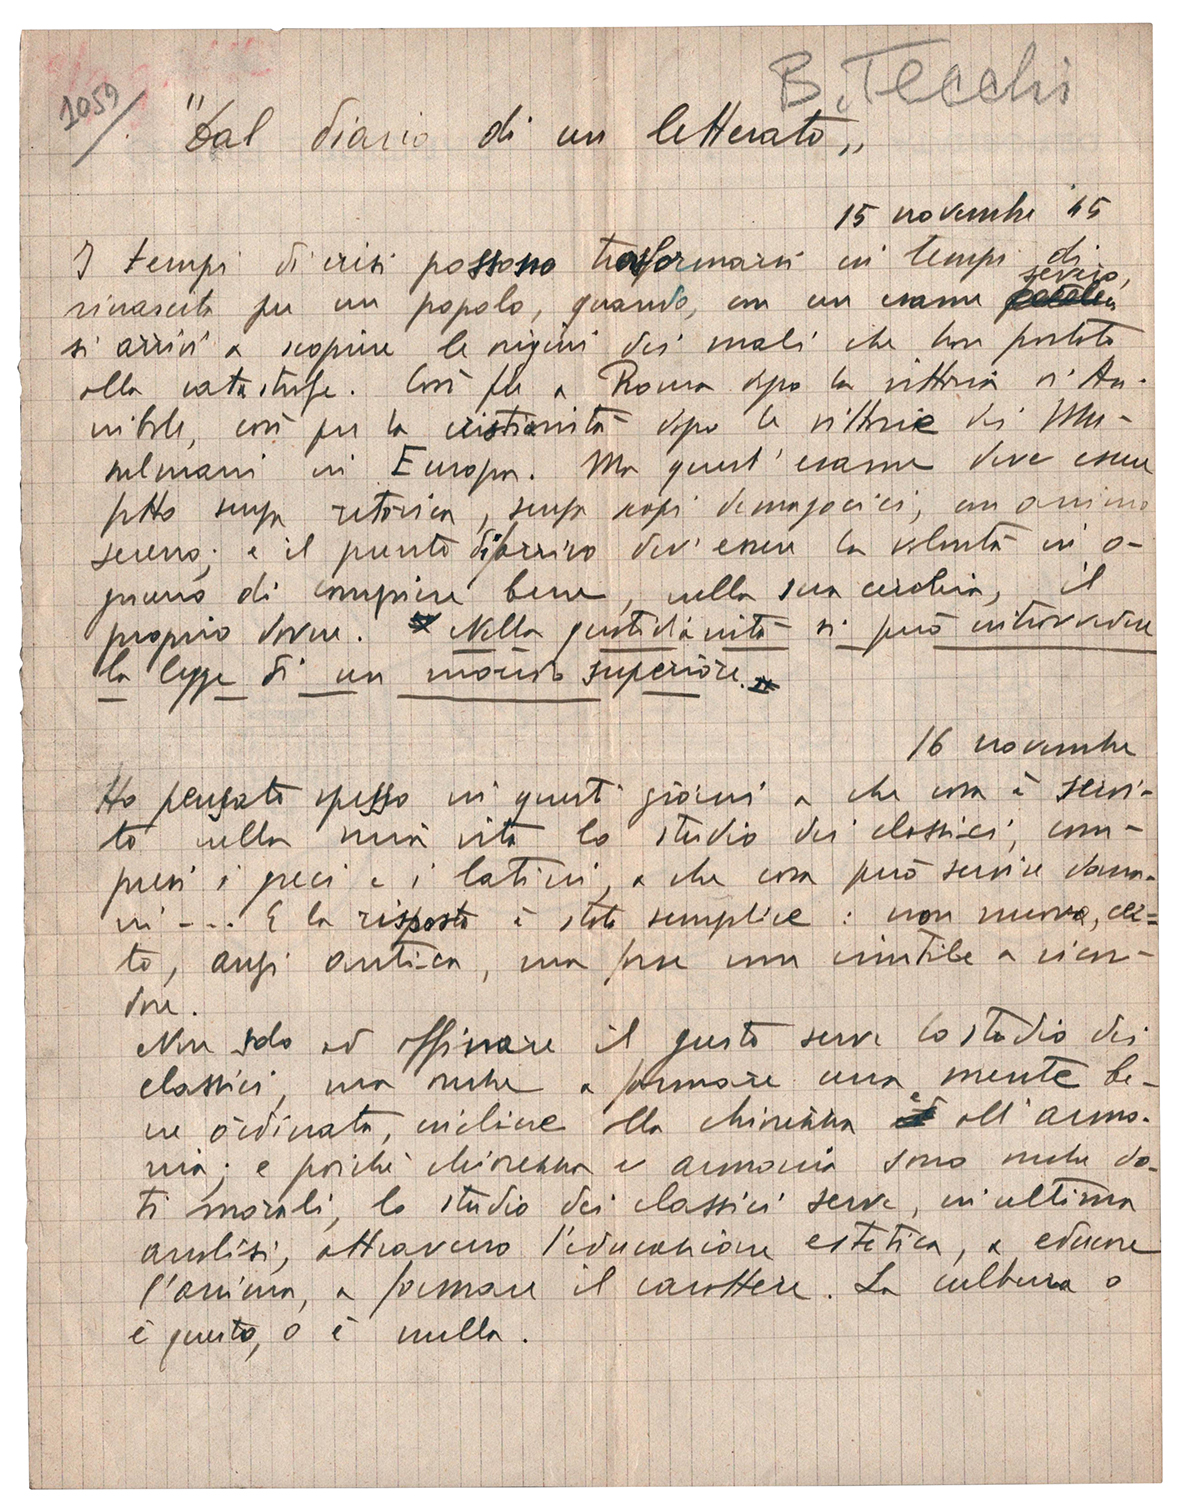 1059
B. Tecchi
"Dal diario di un letterato„
15 novembre '45
I tempi di crisi possono trasformarsi in tempi di
rinascita per un popolo, quando, con un esame severo,
si arrivi a scoprire le origini dei mali che han portato
alla catastrofe. Così fu a Roma dopo la vittoria di An-
nibale, così per la cristianità dopo le vittorie dei Mu-
sulmani in Europa. Ma quest'esame deve essere
fatto senza retorica, senza scopi demagogici, con animo
sereno; e il punto d'arrivo dev'essere la volontà in o-
gnuno di compiere bene, nella sua cerchia, il
proprio dovere. Nella quotidianità si può intravvedere
la legge di un mondo superiore.
16 novembre
Ho pensato spesso in questi giorni a che cosa è servi-
to nella mia vita lo studio dei classici, com-
presi i greci e i latini, a che cosa può servire doma-
ni -... E la risposta è stata semplice: non nuova, cer=
to, anzi antica, ma forse non inutile a ricor-
dare.
Non solo ad affinare il gusto serve lo studio dei
classici, ma anche a formare una mente be-
ne ordinata, incline alla chiarezza e all'armo-
nia; e poiché chiarezza e armonia sono anche do-
ti morali, lo studio dei classici serve, in ultima
analisi, attraverso l'educazione estetica, a educare
l'anima, a formare il carattere. La cultura o
è questo, o è nulla.